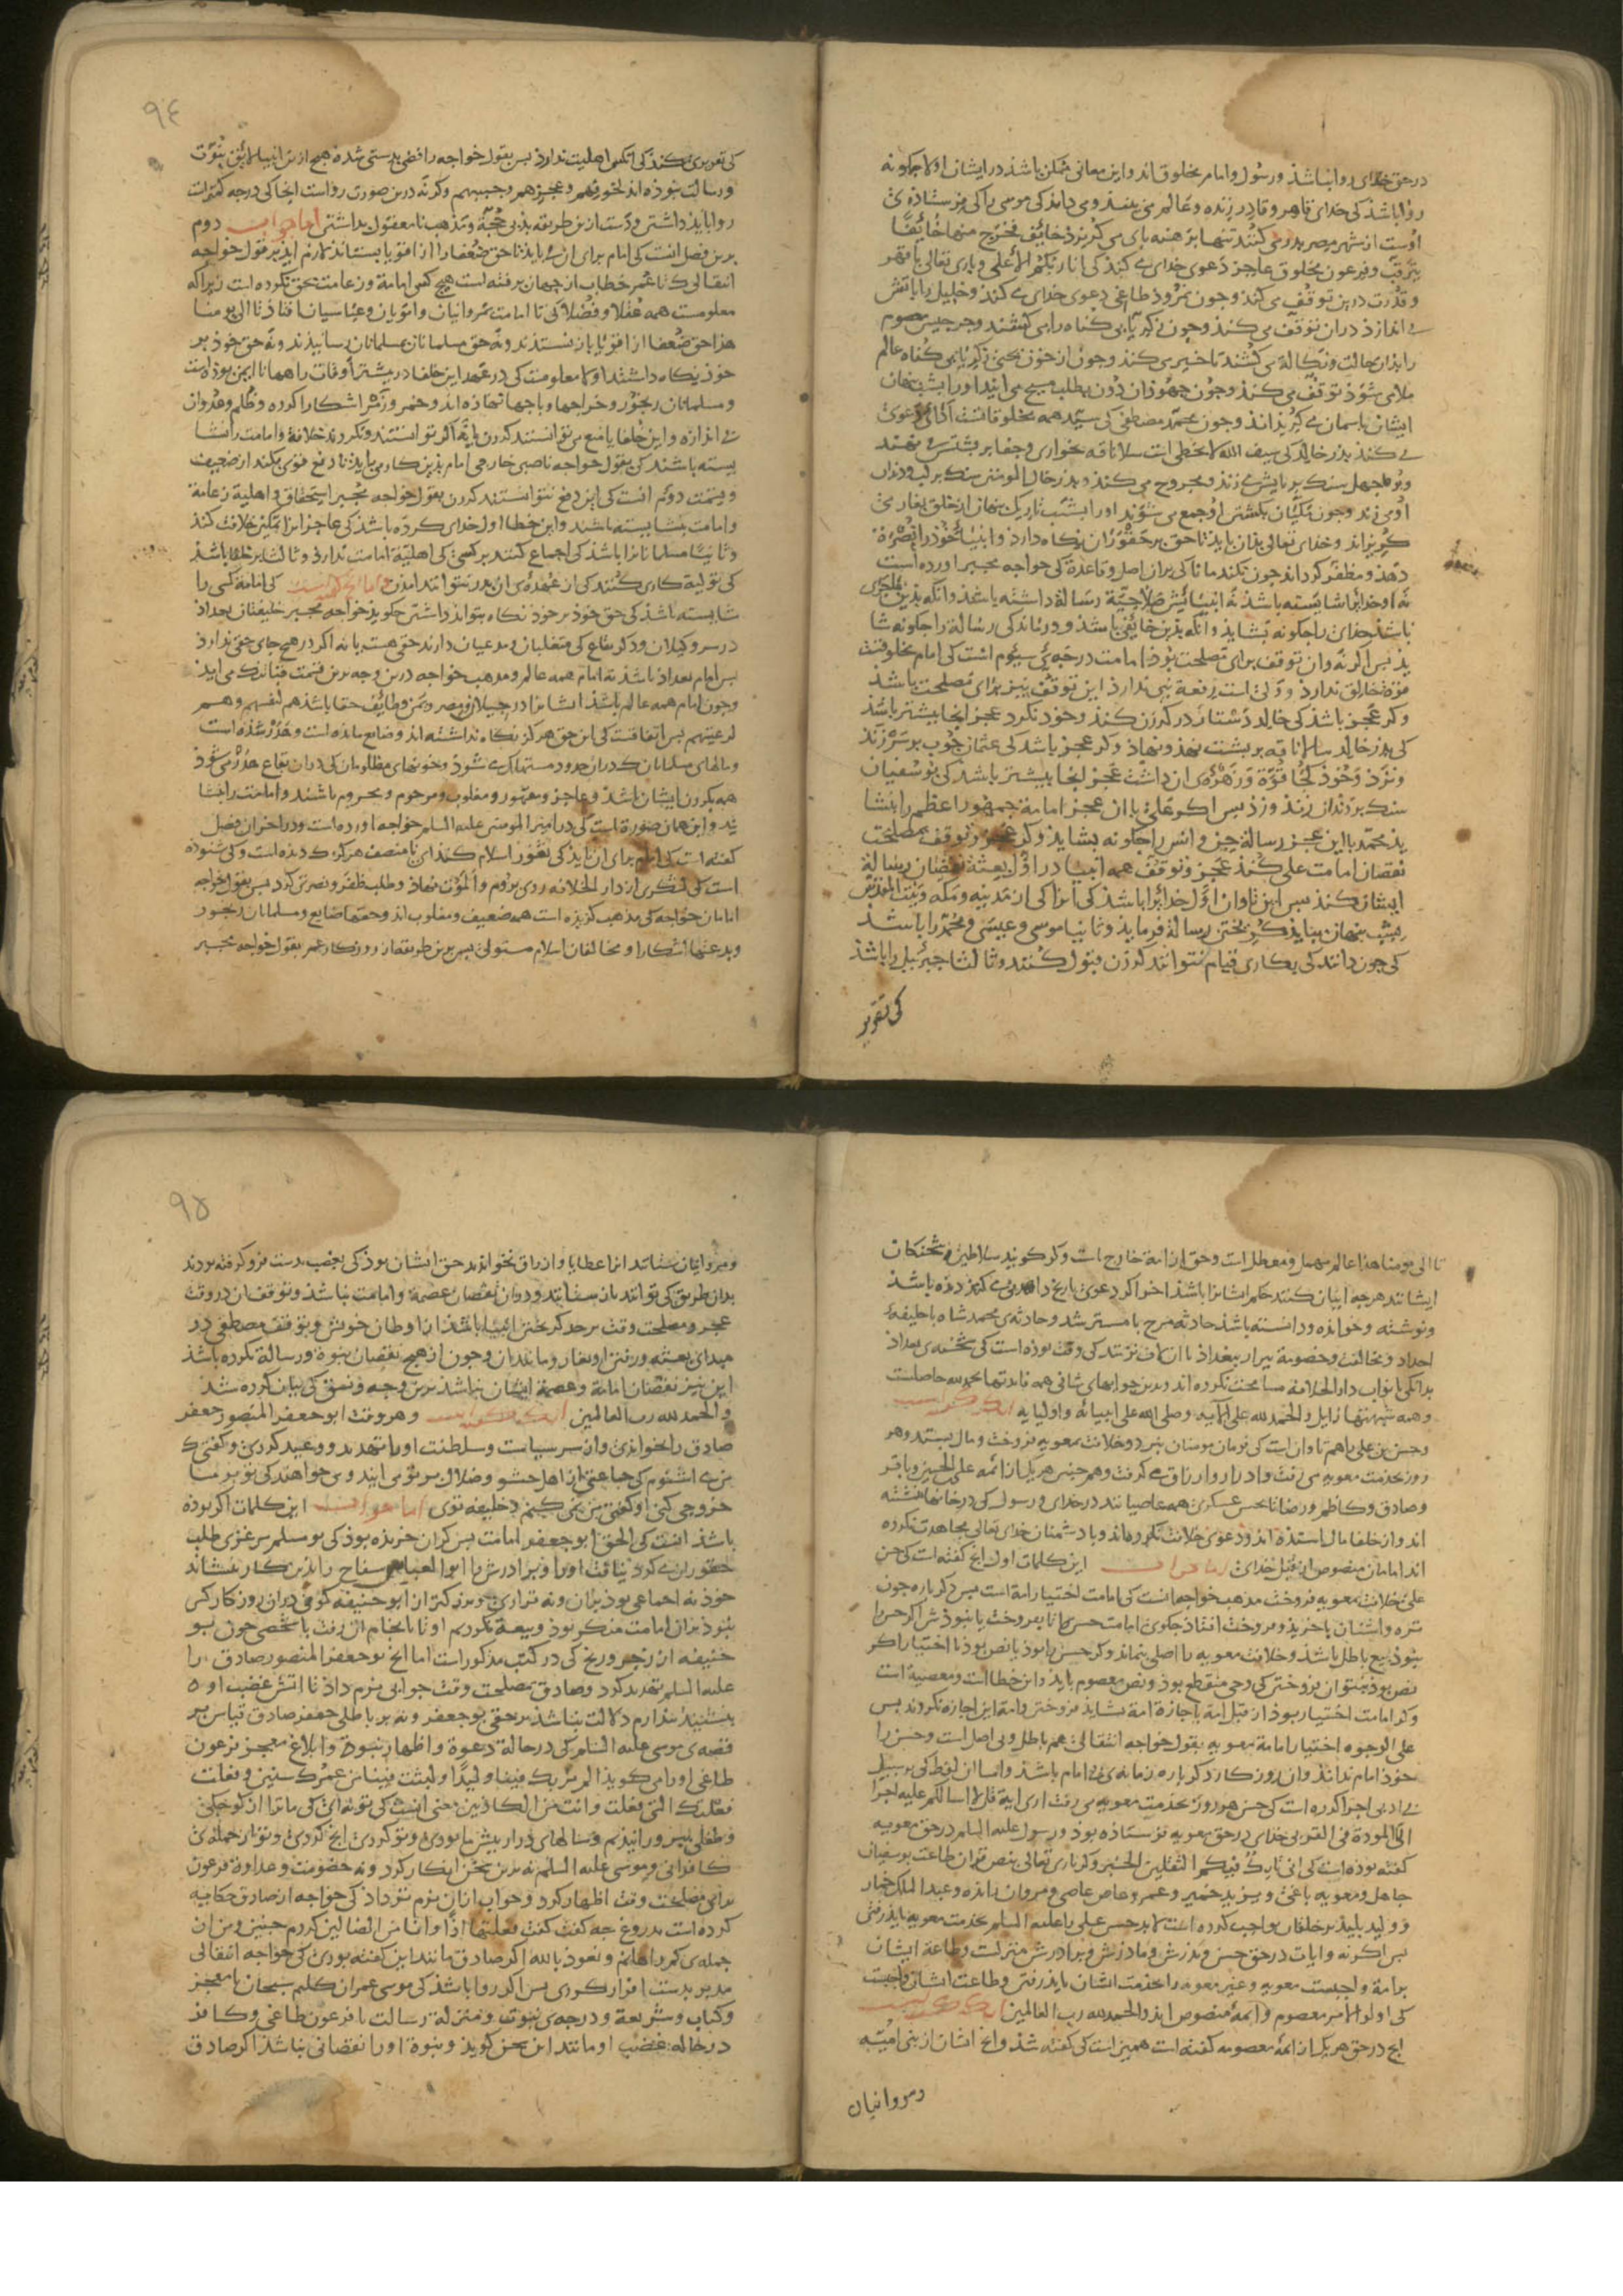 در حق خدای روا نباشد و رسول و امام مخلوق‌اند و این معانی ممکن باشد در ایشان اولا چگونه
روا باشد کی خدای قاهر و قادر زنده و عالم می بیند و می داند کی موسی را کی فرستاده‌ی
اوست از شهر مصر بدر می کنند تنها برهنه پای می گریزد خائف فخرج منها خائفا
یترقب و فرعون مخلوق عاجز دعوی خدای می کند کی انا ربکم الاعلی و باری تعالی با قهر
و قدرت درین توقف می کند و چون نمرود طاغی دعوی خدای می کند و خلیل را باتش
می اندازد در آن توقف می کند و چون زکریّا بی گناه را می کشند و جرجیس معصوم
را بدان حالت و نکالة می کشند تاخیر می کند و چون از خون یحیی زکریا بی گناه عالم
ملای شود توقف می کند و چون جهودان دون بطلب مسیح می آیند او را بشب پنهان
ایشان باسمان می گریزاند و چون محمد مصطفی کی سیّد همه مخلوقاتست
می کند پدر خالد کی سیف الله لا یخطی است سلا ناقه بخواری و جفا بر پشتش می نهند
و بوجهل سنگ بر پایش می زند و مجروح می کند و پدر خال المؤمنین سنگ بر لب و دندان
او می زند و چون مکیان بکشتن او جمع می شوند او را بشب تاریک پنهان از خلق بغار می
گریزاند و خدای تعالی بدان باید تا حق بر حقوران نگاه دارد و انبیاء خود را نصرة
دهد و مظفر گرداند چون نکند مانا کی بر آن اصل و قاعدة کی خواجه مجبر آورده است
نه او خدایرا شایسته باشد نه انبیائش صلاحیّة رسالة داشته باشند و آنکه بدین عاجزی
باشد خدای را چگونه بشاید و آنکه بدین خائفی باشد و درماند کی رسالة را چگونه شا
ید پس اگر نه و آن توقف برای مصلحت بود امامت درجه‌ی سیّوم است کی امام مخلوقست
قوّة خالق ندارد و ولی است رفعة نبی ندارد این توقف نیز برای مصلحت باشد
و گر عجز باشد کی خالد دستار در گردن کند و خود نکرد عجز آنجا بیشتر باشد
کی پدر خالد سلا ناقه بر پشت نهد و نهاذ و گر عجز باشد کی عثمان چوب بر سر زند
و نزد و خود کجا قوّة و زهره‌ی آن داشت عجز آنجا بیشتر باشد کی بوسفیان
سنگ بر دندان زند و زد پس اگر علی با آن عجز امامة جمهور اعظم را نشا
ید محمد با این عجز رسالة جن و انس را چگونه بشاید و گر عجز و توقف بمصلحت
نقصان امامت علی کند عجز و توقف همه انبیا در اوّل بعثة نقصان رسالة
ایشان کند پس این تاوان اوّل خدایرا باشد کی آنرا کی از مدینه و مکه و بیت المقدس
بشب پنهان بباید گریختن رسالة فرماید و ثانیا موسی و عیسی و محمد را باشد
کی چون دانند کی بکاری قیام نتوانند کردن قبول کنند و ثالثا جبرئیل را باشد
کی تقریر
٩٤
کی تقریر می کند کی آنکس اهلیت ندارد پس بقول خواجه رافضی بدسنی شده هیچ از این انبیا لایق نبوّت
و رسالت نبوده‌اند لخوفهم و عجزهم و گرنه درین صورت رواست اینجا کی درجه کمتر است
روا باید داشتن و دست ازین طریقه بد بی حجّة و مذهب نامعقول بداشتن اما جواب دوم
برین فصل آنست کی امام برای آن می باید تا حق ضعفا را از اقویا بستاند لازم آید بر قول خواجه
انتقالی کی تا عمر خطاب از جهان برفته است هیچ کس امامة و زعامت بحق نکرده است زیرا که
معلومست همه عقلا و فضلا کی تا امامت مروانیان و امویان و عباسیان افتاد تا الی یومنا
هذا حق ضعفا از اقویا باز نستدند و نه حق مسلمانان بمسلمانان رسانیدند و نه حق خود بر
خود نگاه داشتند اولا معلومست کی در عهد این خلفا در بیشتر اوقات راهها نا ایمن بوده است
و مسلمانان رنجور و خراجها و باجها نهاده‌اند و خمر و زمر آشکارا کرده و ظلم و عدوان
بی اندازه و این خلفا یا منع می توانستند کردن یا نه اگر توانستند و نکردند خلافة و امامت را نشا
یسته باشند کی بقول خواجه ناصبی خارجی امام بدین کار می باید تا دفع قوی بکند از ضعیف
و قسمت دوّم آنست کی این دفع نتوانستند کردن بقول خواجه مجبر استحقاق و اهلیة زعامة
و امامت نشایسته باشند و این خطا اول خدای کرده باشد کی عاجز را تمکین خلافت کند
و ثانیا مسلمانانرا باشد کی اجماع کنند بر کسی کی اهلیّة امامت ندارد و ثالثا بر خلفا باشد
کی تولیة کاری کنند کی از عهده‌ی آن بدر نتوانند آمدن کی امامة کسی را
شایسته باشد کی حق خود بر خود نگاه بتواند داشتن چگوید خواجه مجبر خلیفتان بغداد
پس امام بغداد باشد نه امام همه عالم و مذهب خواجه درین وجه برین قسمت
و چون امام همه عالم باشد ایشانرا در جیلان و مصر و یمن و طائف حقها باشد هم لنفسهم و هم
لرعیّتهم پس اتفاقست کی این حق هرگز نگاه نداشته‌اند و ضایع مانده است و هدر شده است
و مالهای مسلمانان کی در آن حدود مستهلک می شود و خونهای مظلومان کی در آن بقاع هدر می شود
همه بگردن ایشان باشد و عاجز و مقهور و مغلوب و مرحوم و محروم باشند و امامت را نشا
ید و این همان صورة است کی در امیر المؤمنین علیه السلم خواجه آورده است و در آخر این فصل
گفته است کی امام برای آن باید کی ثغور اسلام
است کی لشکری از دار الخلافه روی بروم و الموت نهاد و طلب ظفر و نصرتی کرد پس بقول خواجه
امامان خواجه کی مذهب گزیده است همه ضعیف و مغلوب‌اند و حقها ضایع و مسلمانان رنجور
و بدعتها آشکارا و مخالفان اسلام مستولی پس برین طریقه از روزگار عمر بقول خواجه مجبر
تا الی یومنا هذا عالم مهمل و معطل است و حق از امة خارج است و گر گویند سلاطین و شحنگان
ایشانند هرچه اینان کنند حکم ایشانرا باشد
و نوشته و خوانده و دانسته باشد حادثه‌ی مسترشد و حادثه‌ی محمد شاه با خلیفه‌ی
بدانکی با نواب دار الخلافه مسامحت نکرده‌اند و بدین جوابهای شافی همه فایدتها بحمد لله حاصلست
و همه شبهتها زایل و الحمد لله علی آلایه و صلی الله علی انبیائه و اولیایه
و حسن بن علی را هم تاوان است کی فرمان مؤمنان نبرد و خلافت بمعویه فروخت و مال بستد و هر
روز بخدمت معویه می رفت و ادرار و ارزاق می گرفت و همچنین هر یک از ائمه علی الحسین و باقر
و صادق و کاظم و رضا تا بحسن عسکری همه عاصیانند در خدای و رسول کی در خانها نشسته
اند و از خلفا مال استده‌اند و دعوی خلافت نکرده‌اند و با دشمنان خدای تعالی مجاهدت نکرده
اند امامان منصوص از قبل خدای اما جواب این کلمات اول آنچ گفته است کی حسن
علی خلافت بمعویه فروخت مذهب خواجه آنست کی امامت باختیار امة است پس دگرباره چون
نبود بیع باطل باشد و خلافت معویه را اصلی نماند و گر حسن را بود یا بنص بود یا اختیار اگر
نص بود نتوان فروختن کی وحی منقطع بود و نص معصوم باید و این خطا است و معصیة است
و گر امامت اختیار بود از قبل امة باجازة امة بشاید فروختن و امة این اجازه نکردند پس
علی الوجوه اختیار امامة معویه بقول خواجه انتقالی هم باطل و بی اصل است و حسن را
خود امام نداند و آن روزگار دگرباره زمانه‌ی بی امام باشد و اما آن لفظ کی بر سبیل
بی ادبی اجرا کرده است کی حسن هر روز بخدمت معویه می رفت آری آیة قل لا اسألکم علیه اجرا
الّا المودة فی القربی خدای در حق معویه فرستاده بود و رسول علیه السلم در حق معویه
گفته بوده است کی انی تارک فیکم الثقلین الخبر و گر باری تعالی بنص قرآن طاعت بوسفیان
جاهل و معویه باغی و یزید خمیر و عمرو عاص عاصی و مروان رانده و عبد الملک خمار
و ولید پلید بر خلقان واجب کرده است لابد حسن علی را علیه السلم بخدمت معویه باید رفتن
پس اگر نه و آیات در حق حسن و پدرش و مادرش و برادرش منزلست و طاعة ایشان
بر امة واجبست معویه و غیر معویه را بخدمت ایشان باید رفتن و طاعت ایشان واجبست
کی اولو الامر معصوم و ائمه‌ی منصوص‌اند و الحمد لله رب العالمین
آنچ در حق هر یک از ائمه معصوم گفته است همین است کی گفته شد و آنچ ایشان از بنی امیّه
و مروانیان
٩٥
و مروانیان ستانند از عطایا و ارزاق نخوانند حق ایشان بود کی بغصب بدست فرو گرفته بودند
بدان طریق کی توانند باز ستانند و در آن نقصان عصمة و امامت نباشد و توقفشان در وقت
عجز و مصلحت وقت بر حد گریختن انبیا باشد از اوطان خویش و توقف مصطفی در
مبدای بعثه و رفتن او بغار و مانند آن و چون از هیچ نقصان نبوة و رسالة نکرده باشد
این نیز نقصان امامة و عصمة ایشان نباشد برین وجه و نسق کی بیان کرده شد
و الحمد لله رب العالمین و هر وقت ابو جعفر المنصور جعفر
صادق را بخواندی و از سر سیاست و سلطنت او را تهدید و وعید کردی و گفتی کی
من می شنوم کی جماعتی از اهل حشو و ضلال بر تو می آیند و می خواهند کی تو بر ما
خروج کنی او گفتی من نمی کنم و خلیفه توی اما جواب این کلمات اگر بوده
باشد آنست کی الحق ابو جعفر امامت بس گران خریده بود کی بو مسلم مرغزی طلب
حقوران می کرد نیافت او را و برادرش را ابو العباس سفاح را بدین کار بنشاند
خود نه اجماعی بود بر آن و نه قراری و بزرگتر از ابو حنیفه کوفی در آن روزگار کس
نبود بر آن امامت منکر بود و بیعة نکرد
حنیفه آن زجر و رنج کی در کتب مذکور است اما آنچ بو جعفر المنصور صادق را
علیه السلم تهدید کرد و صادق بمصلحت وقت جوابی نرم داد تا آتش غضب او
بنشیند پندارم دلالت نباشد بر حقی بو جعفر و نه بر باطلی جعفر صادق قیاس بر
قصه‌ی موسی علیه السلم کی در حالة دعوة و اظهار نبوة و ابلاغ معجز فرعون
طاغی او را می گوید الم نربک فینا ولیدا و لبثت فینا من عمرک سنین و فعلت
فعلتک التی فعلت و انت من الکافرین معنی آنست کی تو نه آنی کی ما ترا از کوچکی
و طفلی بپرورانیدیم و سالهای دراز پیش ما بودی و تو کردی آنچ کردی و تو از جمله‌ی
کافرانی و موسی علیه السلم نه برین سخن انکار کرد و نه خصومت و عداوة فرعون
برای مصلحت وقت اظهار کرد و جواب از آن نرم‌تر داد کی خواجه از صادق حکایة
کرده است بدروغ چه گفت گفت فعلتها اذا و انا من الضالین کردم چنین و من از آن
جمله‌ی گمراهانم و نعوذ بالله اگر صادق مانند این گفته بودی کی خواجه انتقالی
مدبر بدست افزار کردی پس اگر روا باشد کی موسی عمران کلیم سبحان با معجز
و کتاب و شریعة و درجه‌ی نبوّت و منزلة رسالت با فرعون طاغی و کافر
در حاله غضب او مانند این سخن گوید و نبوة او را نقصانی نباشد اگر صادق